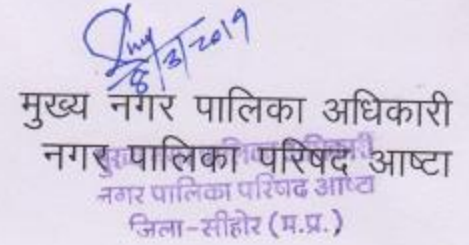 8/3/2019
मुख्य नगर पालिका अधिकारी
नगर पालिका परिषद आष्टा
नगर पालिका परिषद आष्टा
जिला-सीहोर (म.प्र.)